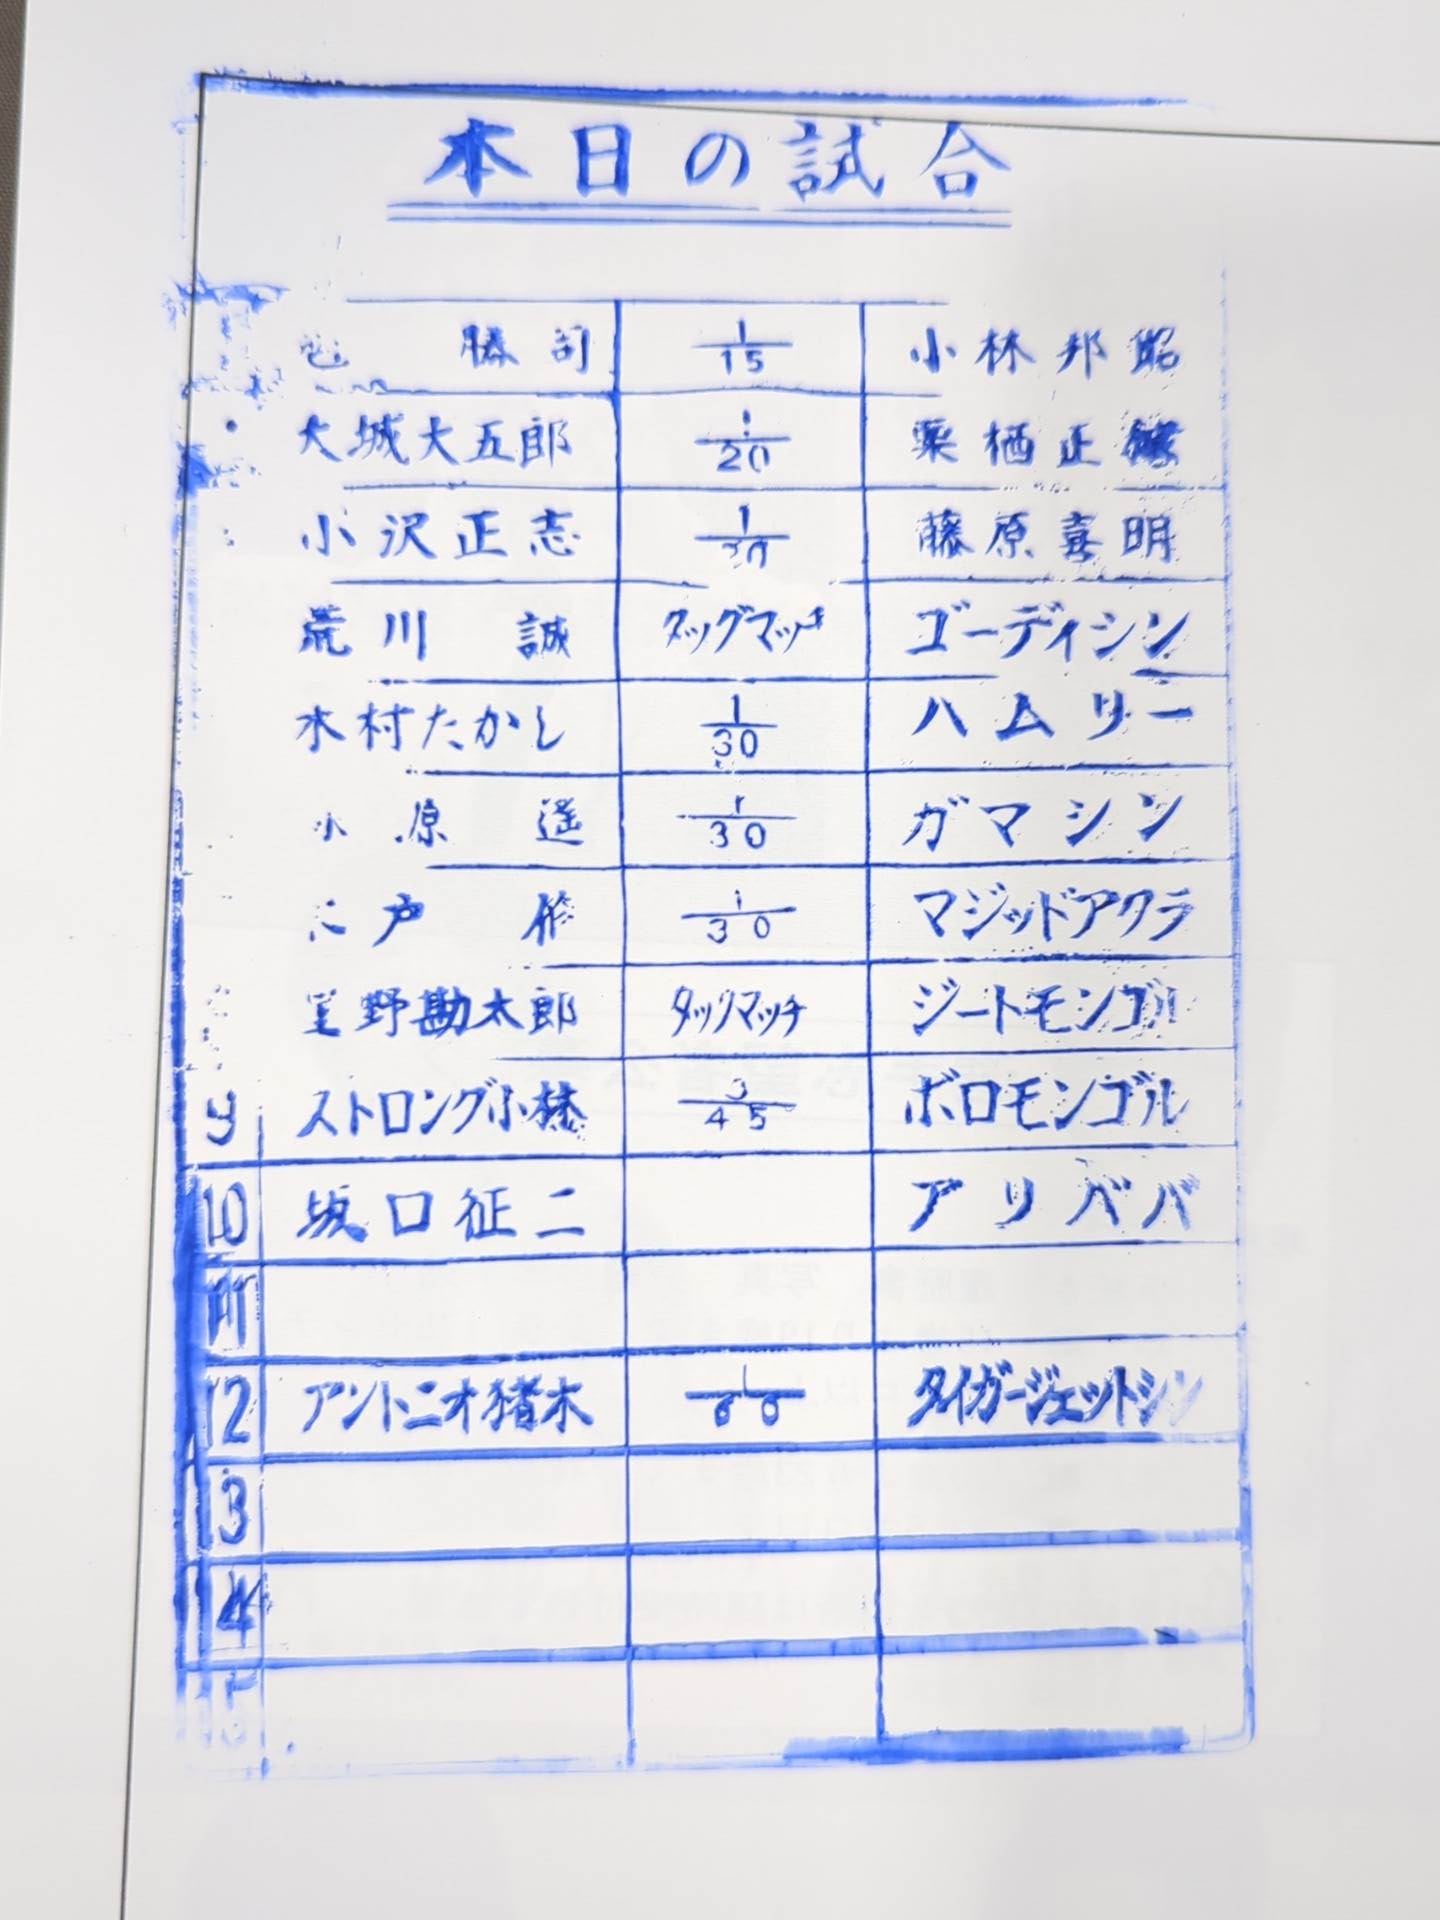 本日の試合
勝司 1/15 小林邦昭
大城大五郎 1/20 栗栖正
小沢正志 1/30 藤原喜明
荒川誠 タッグマッチ ゴーディシン
木村たかし 1/30 ハムリー
小原遥 1/30 ガマシン
戸修 1/30 マジッドアクラ
星野勘太郎 タックマッチ ジートモンゴル
9 ストロング小林 3/45 ボロモンゴル
10 坂口征二 アリババ
11
12 アントニオ猪木 1/60 タイガージェットシン
13
14